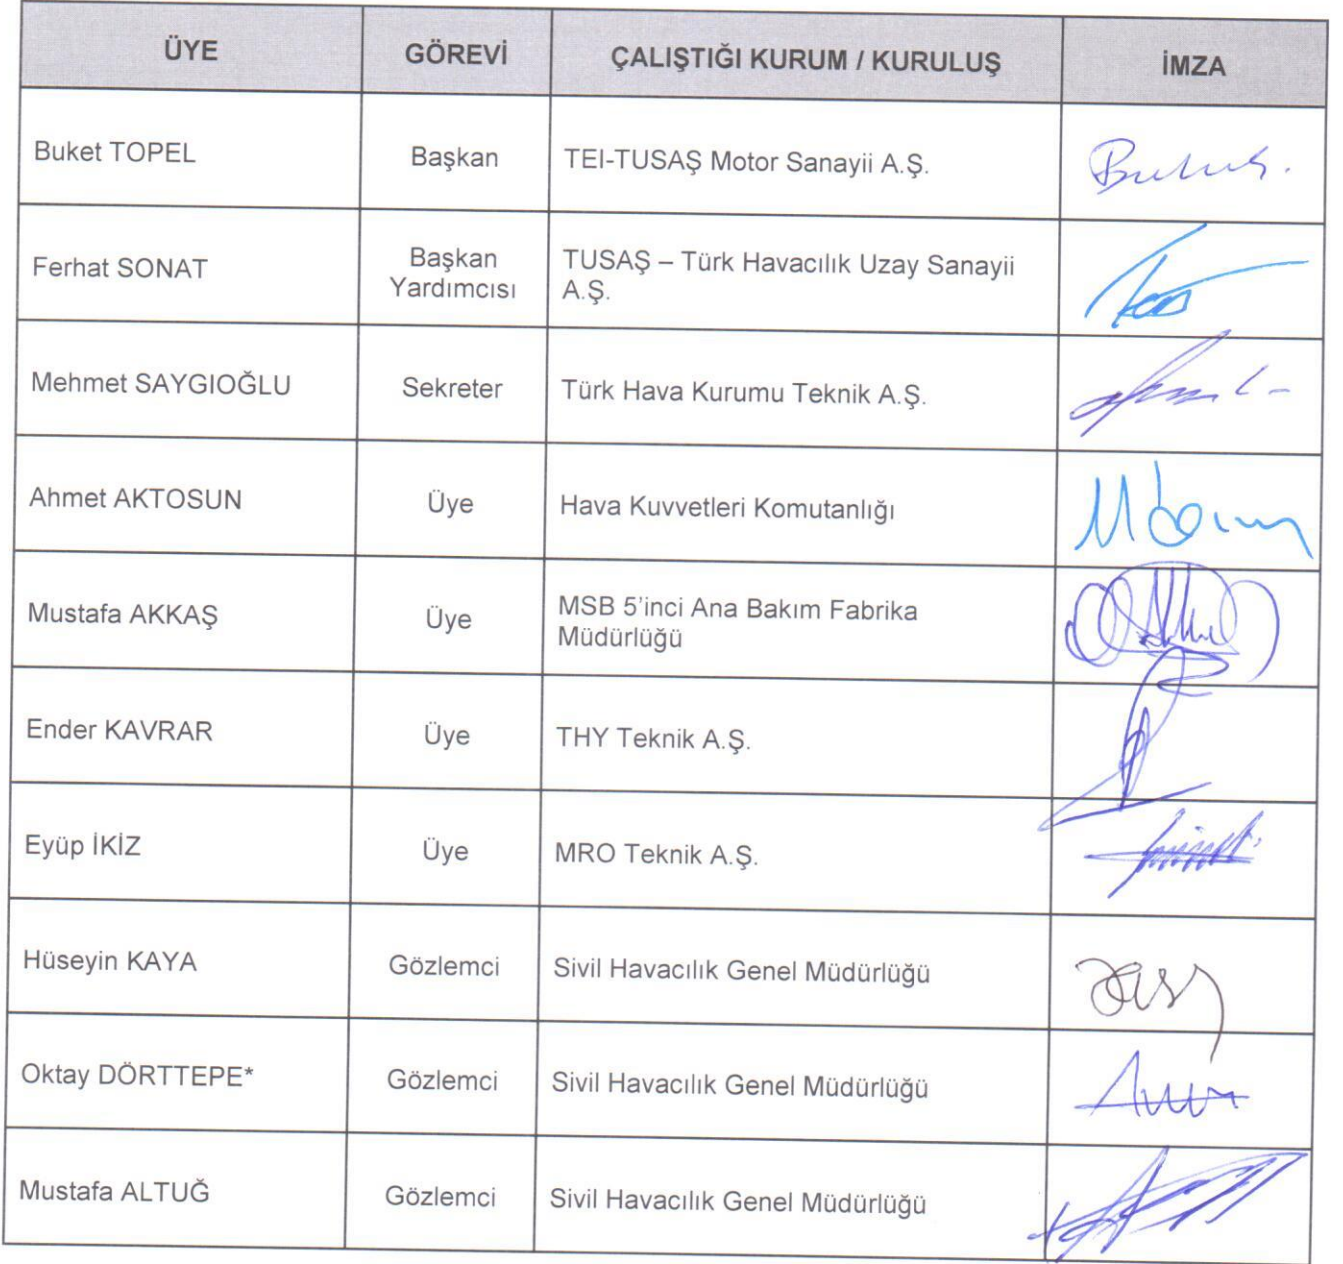 ÜYE GÖREVİ ÇALIŞTIĞI KURUM / KURULUŞ İMZA
Buket TOPEL Başkan TEI-TUSAŞ Motor Sanayii A.Ş.
Ferhat SONAT Başkan Yardımcısı TUSAŞ – Türk Havacılık Uzay Sanayii A.Ş.
Mehmet SAYGIOĞLU Sekreter Türk Hava Kurumu Teknik A.Ş.
Ahmet AKTOSUN Üye Hava Kuvvetleri Komutanlığı
Mustafa AKKAŞ Üye MSB 5’inci Ana Bakım Fabrika Müdürlüğü
Ender KAVRAR Üye THY Teknik A.Ş.
Eyüp İKİZ Üye MRO Teknik A.Ş.
Hüseyin KAYA Gözlemci Sivil Havacılık Genel Müdürlüğü
Oktay DÖRTTEPE* Gözlemci Sivil Havacılık Genel Müdürlüğü
Mustafa ALTUĞ Gözlemci Sivil Havacılık Genel Müdürlüğü